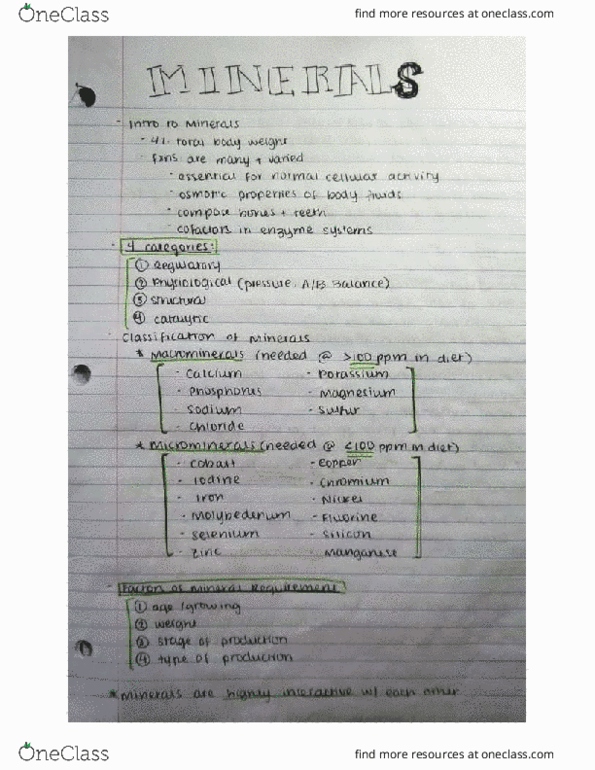 OneClass
find more resources at oneclass.com
MINERALS
- Intro to Minerals
- 4% total body weight
- fxns are many + varied
- essential for normal cellular activity
- osmotic properties of body fluids
- compose bones + teeth
- cofactors in enzyme systems
- 4 categories:
① Regulatory
② Physiological (pressure, A/B Balance)
③ structural
④ catalytic
- Classification of Minerals
* Macrominerals (needed @ >100 ppm in diet)
- calcium - Potassium
- Phosphorus - Magnesium
- Sodium - Sulfur
- Chloride
* Microminerals (needed @ <100 ppm in diet)
- cobalt - copper
- Iodine - Chromium
- Iron - Nickel
- Molybedenum - Fluorine
- Selenium - Silicon
- Zinc - Manganese
- Factors of Mineral Requirement
① age/growing
② weight
③ stage of production
④ type of production
* Minerals are highly interactive w/ each other
OneClass
find more resources at oneclass.com